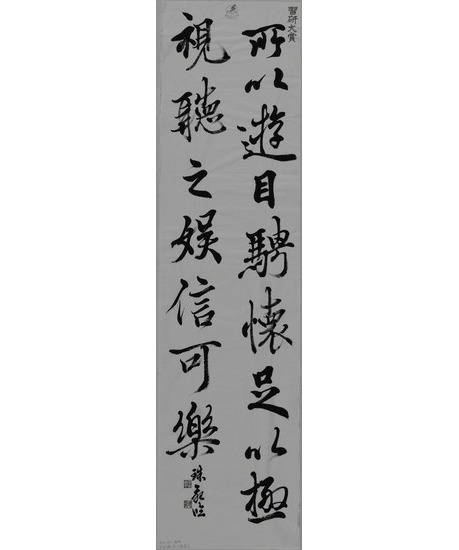 習研大賞
所以遊目騁懷足以極
視聽之娯信可樂